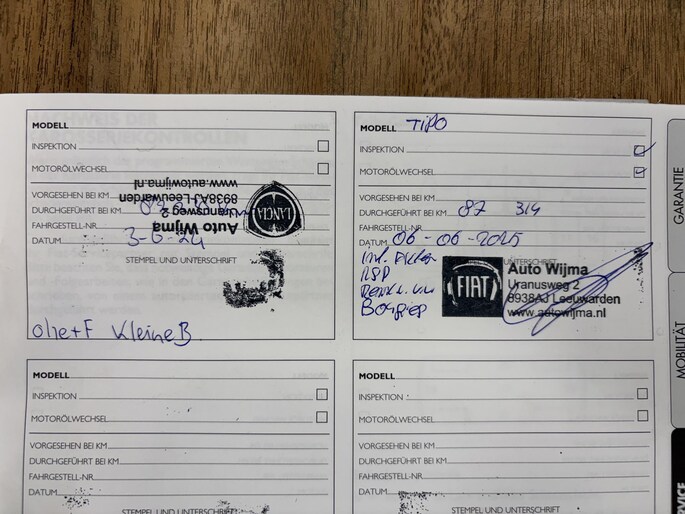 MODELL
INSPEKTION
MOTORÖLWECHSEL
VORGESEHEN BEI KM
DURCHGEFÜHRT BEI KM
FAHRGESTELL-NR.
DATUM 3-6-24
STEMPEL UND UNTERSCHRIFT
LANCIA
Auto Wijma
Uranusweg 2
8938AJ Leeuwarden
www.autowijma.nl
olie+F KleineB.
MODELL TIPO
INSPEKTION
MOTORÖLWECHSEL
VORGESEHEN BEI KM
DURCHGEFÜHRT BEI KM 87 314
FAHRGESTELL-NR.
DATUM 06-06-2025
UNTERSCHRIFT
FIAT
Auto Wijma
Uranusweg 2
8938AJ Leeuwarden
www.autowijma.nl
MODELL
INSPEKTION
MOTORÖLWECHSEL
VORGESEHEN BEI KM
DURCHGEFÜHRT BEI KM
FAHRGESTELL-NR.
DATUM
STEMPEL UND UNTERSCHRIFT
MODELL
INSPEKTION
MOTORÖLWECHSEL
VORGESEHEN BEI KM
DURCHGEFÜHRT BEI KM
FAHRGESTELL-NR.
DATUM
STEMPEL UND UNTERSCHRIFT
GARANTIE
MOBILITÄT